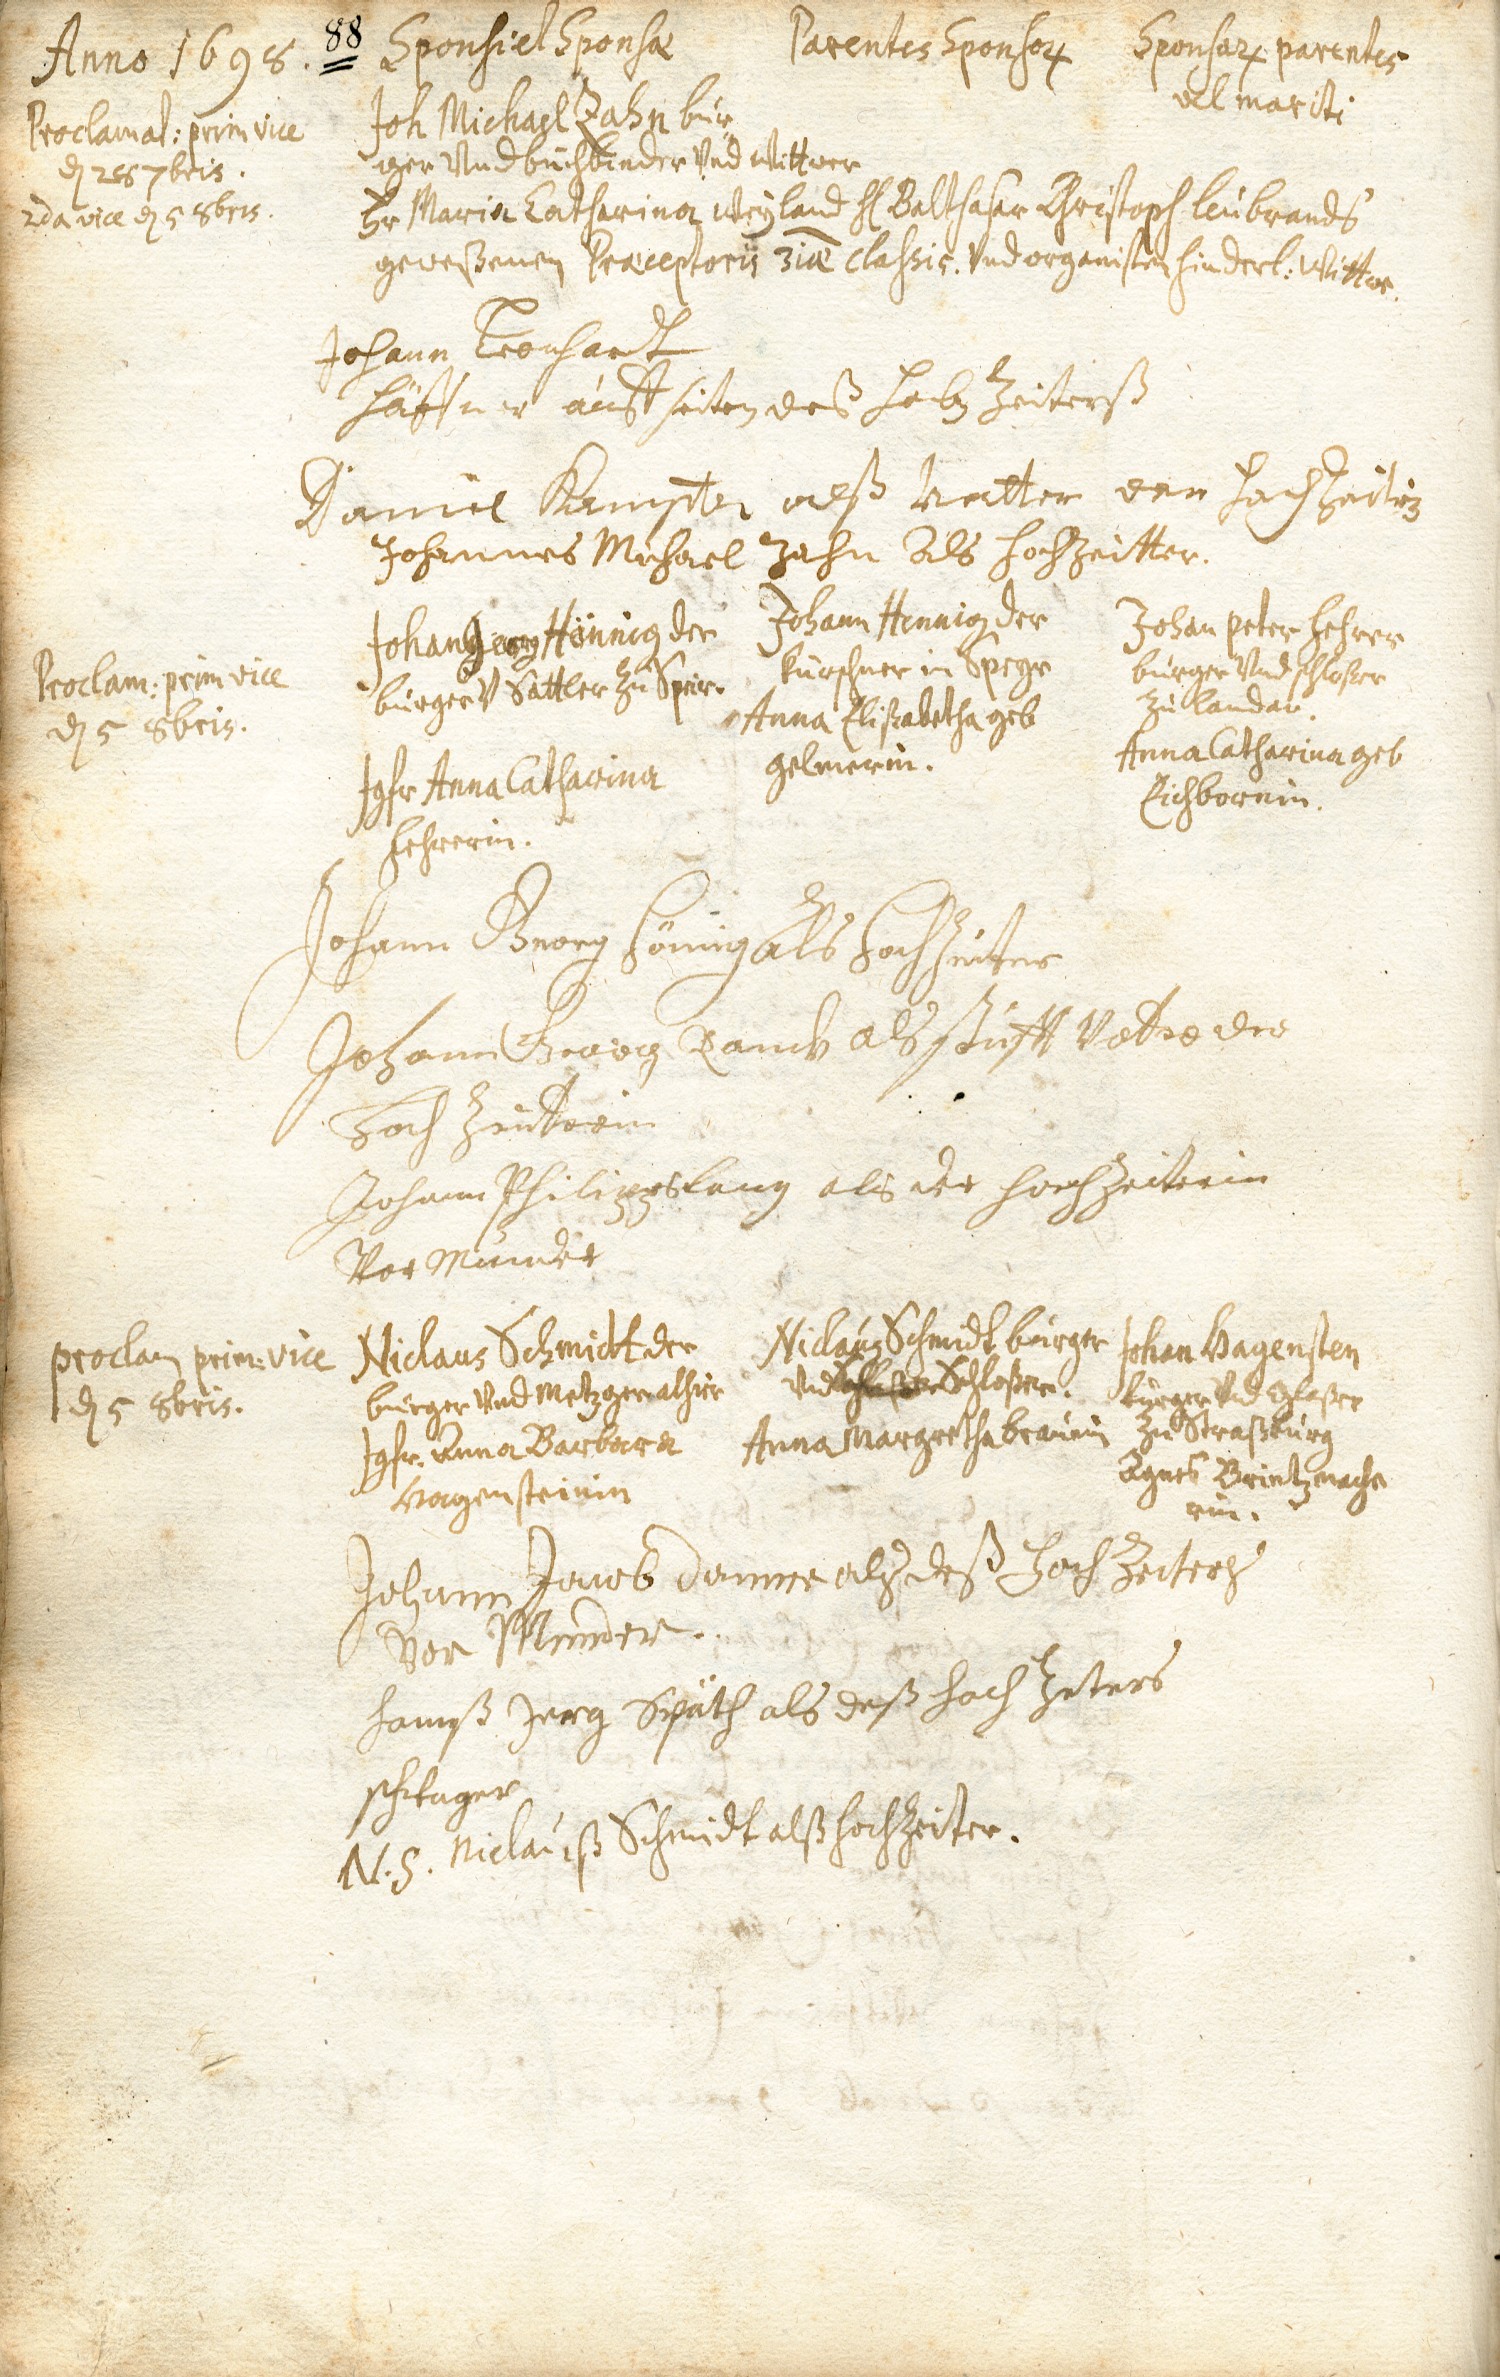 Anno 1698. 88 Sponsi et Sponsæ Parentes Sponsor. Sponsar. parentes
vel mariti
Proclamat: prim vice
d 28 7bris.
2da vice d 5 8bris.
Joh Michael Zahn bür
ger Und buchbinder Und Wittwer
Fr Maria Catharina weyland H Balthasar Christoph leubrands
geweßenen Præceptoris 3iæ classis. Und organisten hinderl: Wittwe.
Johann Leonhardt
Häffner auff seiten deß hochzeiterß
Daniel alß Vatter der hochzeiterin
Johannes Michael Zahn Als hochzeitter.
Proclam: prim vice
d 5 8bris.
Johan Georg Hönnig der
bürger V Sattler Zu Speir.
Jgfr Anna Catharina
Fehrerin.
Johann Hennig der
kürschner in Speyr
Anna Elisabetha geb
gelmerin.
Johan peter Fehrer
bürger Und schloßer
zu landau.
Anna Catharina geb
Eichbornin.
Johann Georg Hönnig Als Hochzeiter
Johann Georg als stüff Vatter der
Hoch Zeiterin
Johann Philipps lang als der hochzeiterin
Vor Münder
proclam prim: vice
d 5 8bris.
Niclaus Schmidt der
bürger Und Metzger alhier
Jgfr. Anna Barbara
Wagensteinin
Niclaus Schmidt bürger
Und Schloßer.
Anna Margretha braunin
Johan Wagenstein
bürger Und Schloßer
Zu Straßburg
Agnes Brintzmache
rin.
Johann Jacob als deß Hoch Zeiters
Vor Münder.
Hanß Jerg Späth als deß hoch Zeters
schwager
N. S. Niclauß Schmidt alß hochzeiter.